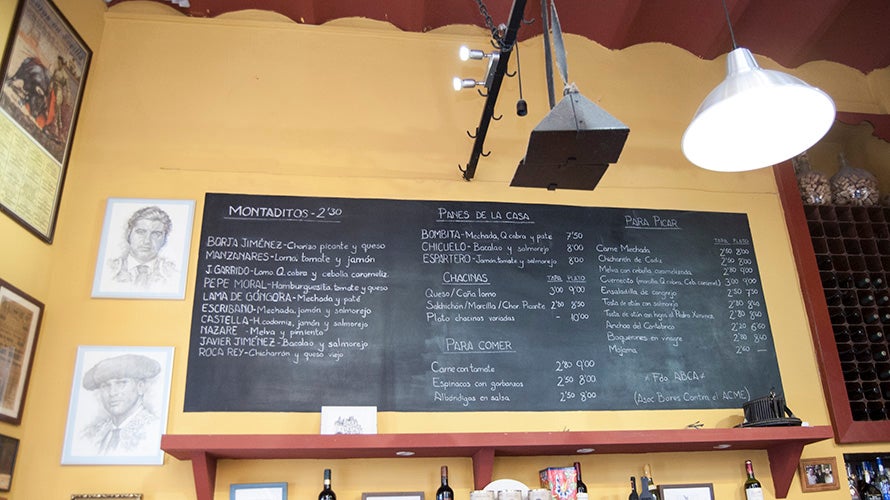 MONTADITOS - 2'30
BORJA JIMÉNEZ - Chorizo picante y queso
MANZANARES - Lomo, tomate y jamón
J. GARRIDO - Lomo, Q. cabra y cebolla carameliz.
PEPE MORAL - Hamburguesita, tomate y queso
LAMA DE GÓNGORA - Mechada y paté
ESCRIBANO - Mechada, jamón y salmorejo
CASTELLA - H. codorniz, jamón y salmorejo
NAZARE - Melva y pimiento
JAVIER JIMÉNEZ - Bacalao y salmorejo
ROCA REY - Chicharrón y queso viejo
PANES DE LA CASA
BOMBITA - Mechada, Q. cabra y paté 7'50
CHICUELO - Bacalao y salmorejo 8'00
ESPARTERO - Jamón, tomate y salmorejo 8'00
CHACINAS TAPA PLATO
Queso / Caña lomo 3'00 9'00
Salchichón / Morcilla / Chor. Picante 2'80 8'50
Plato chacinas variadas - 10'00
PARA COMER
Carne con tomate 2'80 9'00
Espinacas con garbanzos 2'50 8'00
Albóndigas en salsa 2'50 8'00
PARA PICAR TAPA PLATO
Carne Mechada 2'60 8'00
Chicharrón de Cádiz
Melva con cebolla caramelizada
(mechada, Q. cabra, Ceb. caramel)
Ensaladilla de cangrejo 2'50 7'50
Tosta de atún con salmorejo
Tosta de atún con hojas al Pedro Ximénez
Anchoa del Cantábrico
Boquerones en vinagre
Mojama 2'60 —
* Fdo ABCA *
(Asoc Bares Contra el ACME)